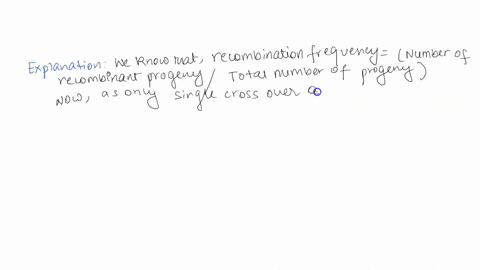 Explanation: We know that, recombination frequency = (Number of
recombinant progeny / Total number of progeny)
Now, as only single cross over